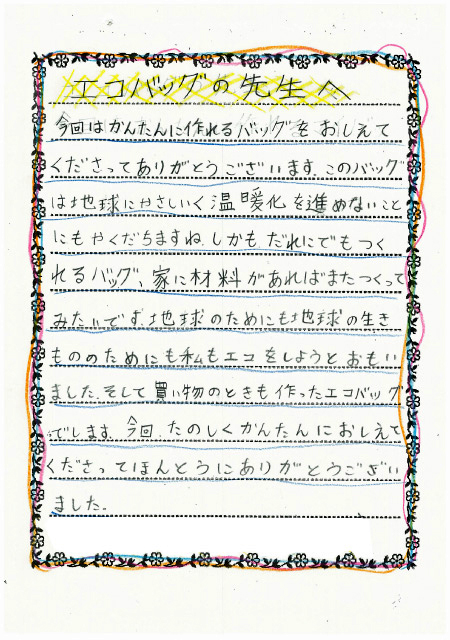 エコバッグの先生へ
今回はかんたんに作れるバッグをおしえて
くださってありがとうございます。このバッグ
は地球にやさしいく温暖化を進めないこと
にもやくだちますね。しかも、だれにでもつく
れるバッグ、家に材料があればまたつくって
みたいです。地球のためにも地球の生き
もののためにも私もエコをしようとおもい
ました。そして買い物のときも作ったエコバッグ
でします。今回、たのしくかんたんにおしえて
くださってほんとうにありがとうござい
ました。